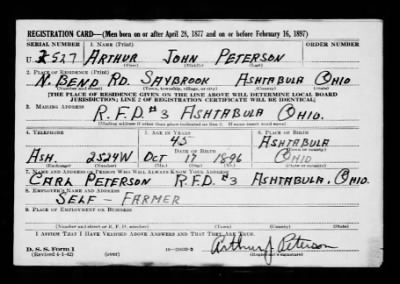 REGISTRATION CARD—(Men born on or after April 28, 1877 and on or before February 16, 1897)
SERIAL NUMBER 1. NAME (Print) ORDER NUMBER
U 2527 ARTHUR JOHN PETERSON
(First) (Middle) (Last)
2. PLACE OF RESIDENCE (Print)
N. BEND RD. SAYBROOK ASHTABULA OHIO
(Number and street) (Town, township, village, or city) (County) (State)
[THE PLACE OF RESIDENCE GIVEN ON THE LINE ABOVE WILL DETERMINE LOCAL BOARD
JURISDICTION; LINE 2 OF REGISTRATION CERTIFICATE WILL BE IDENTICAL]
3. MAILING ADDRESS
R.F.D #3 ASHTABULA OHIO.
[Mailing address if other than place indicated on line 2. If same insert word same]
4. TELEPHONE 5. AGE IN YEARS 6. PLACE OF BIRTH
45 ASHTABULA
DATE OF BIRTH (Town or county)
ASH. 2524W OCT 17 1896 OHIO
(Exchange) (Number) (Mo.) (Day) (Yr.) (State or country)
7. NAME AND ADDRESS OF PERSON WHO WILL ALWAYS KNOW YOUR ADDRESS
CARL PETERSON R.F.D. #3 ASHTABULA. OHIO.
8. EMPLOYER'S NAME AND ADDRESS
SELF - FARMER
9. PLACE OF EMPLOYMENT OR BUSINESS
(Number and street or R. F. D. number) (Town) (County) (State)
I AFFIRM THAT I HAVE VERIFIED ABOVE ANSWERS AND THAT THEY ARE TRUE.
D. S. S. Form 1
(Revised 4-1-42) (over)
Arthur J Peterson
(Registrant's signature)